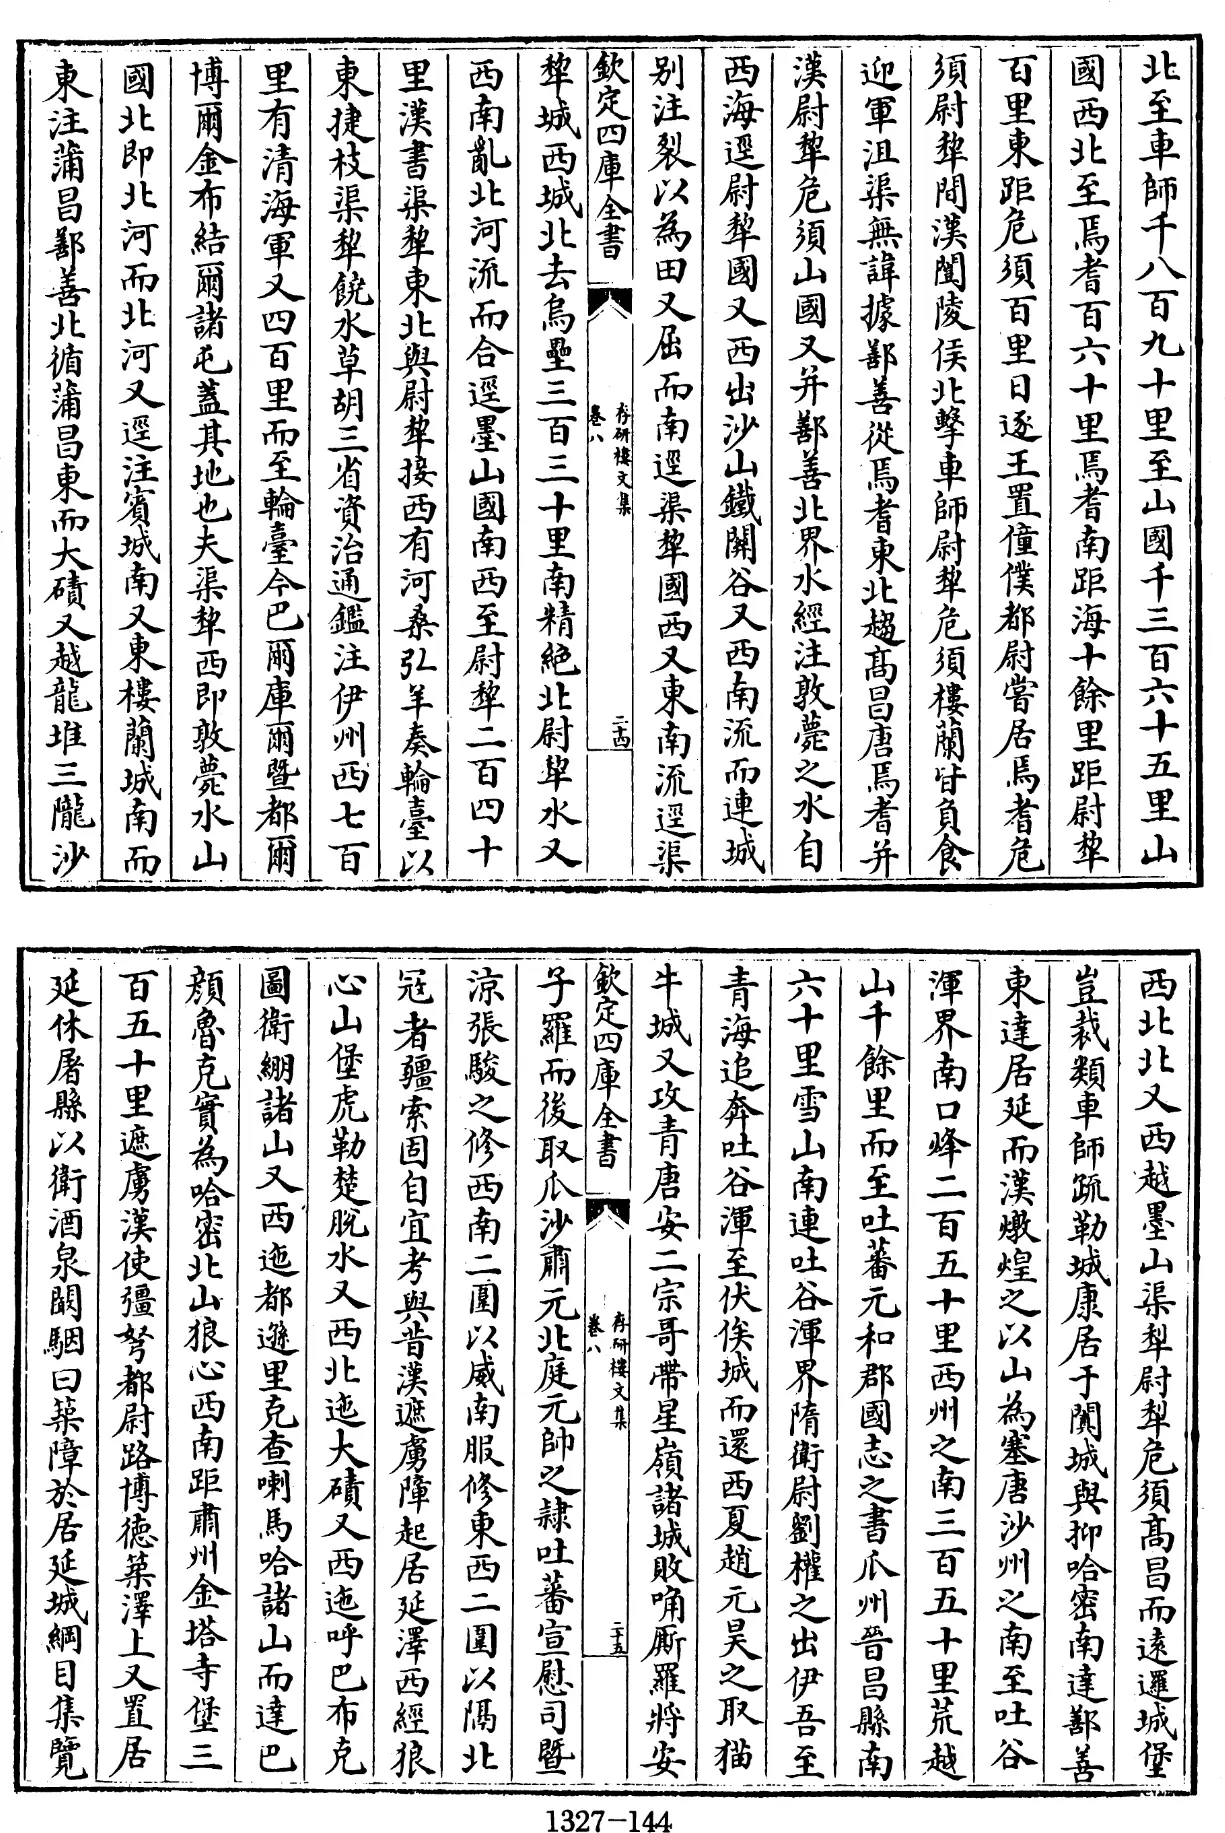 北至車師千八百九十里至山國千三百六十五里山
國西北至焉耆百六十里焉耆南距海十餘里距尉犂
百里東距危須百里日逐王置僮僕都尉嘗居焉耆危
須尉犂間漢闓陵侯北擊車師尉犂危須樓蘭皆負食
迎軍沮渠無諱據鄯善從焉耆東北趨髙昌唐焉耆并
漢尉犂危須山國又并鄯善北界水經注敦薨之水自
西海逕尉犂國又西出沙山鐵關谷又西南流而連城
别注裂以為田又屈而南逕渠犂國西又東南流逕渠
欽定四庫全書
存研樓文集
卷八
二十四
犂城西城北去烏壘三百三十里南精絶北尉犂水又
西南亂北河流而合逕墨山國南西至尉犂二百四十
里漢書渠犂東北與尉犂接西有河桑弘羊奏輪臺以
東捷枝渠犂饒水草胡三省資治通鑑注伊州西七百
里有清海軍又四百里而至輪臺今巴爾庫爾暨都爾
博爾金布結爾諸屯蓋其地也夫渠犂西即敦薨水山
國北即北河而北河又逕注賓城南又東樓蘭城南而
東注蒲昌鄯善北循蒲昌東而大磧又越龍堆三隴沙
西北北又西越墨山渠犁尉犁危須髙昌而遠邏城堡
豈裁類車師疏勒城康居于闐城與抑哈密南達鄯善
東達居延而漢燉煌之以山為塞唐沙州之南至吐谷
渾界南口烽二百五十里西州之南三百五十里荒越
山千餘里而至吐蕃元和郡國志之書瓜州晉昌縣南
六十里雪山南連吐谷渾界隋衛尉劉權之出伊吾至
青海追奔吐谷渾至伏俟城而還西夏趙元昊之取猫
牛城又攻青唐安二宗哥帶星嶺諸城敗唃厮羅將安
欽定四庫全書
存研樓文集
卷八
二十五
子羅而後取瓜沙肅元北庭元帥之隷吐蕃宣慰司暨
涼張駿之修西南二圍以威南服修東西二圍以隔北
冦者疆索固自宜考與昔漢遮虜障起居延澤西經狼
心山堡虎勒楚脱水又西北迤大磧又西迤呼巴布克
圖衛綳諸山又西迤都遜里克查喇馬哈諸山而達巴
顔魯克實為哈密北山狼心西南距肅州金塔寺堡三
百五十里遮虜漢使彊弩都尉路博徳築澤上又置居
延休屠縣以衛酒泉闞駰曰築障於居延城綱目集覽
1327-144